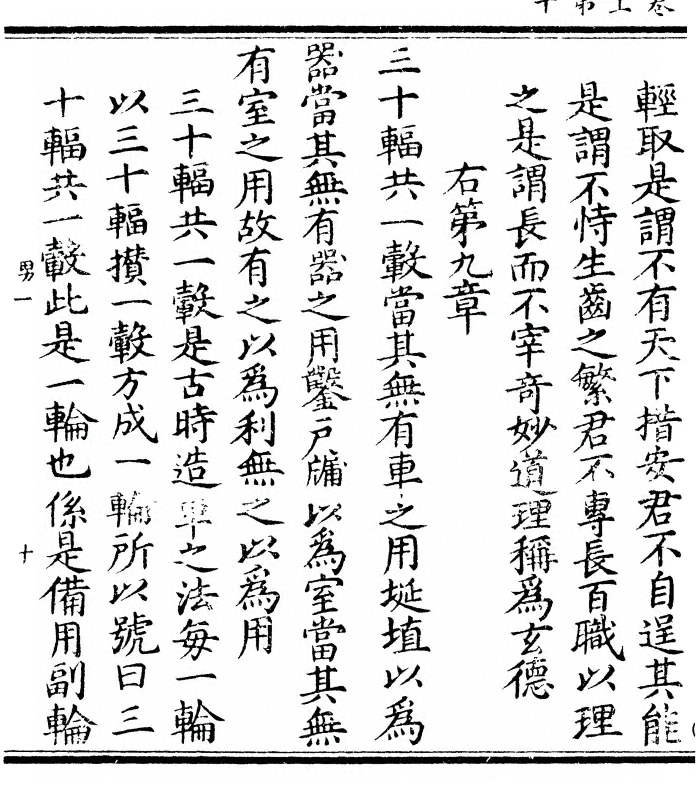 輕取是謂不有天下措安君不自逞其能
是謂不恃生齒之繁君不專長百職以理
之是謂長而不宰奇妙道理稱爲玄德
右第九章
三十輻共一轂當其無有車之用埏埴以爲
器當其無有器之用鑿戶牖以爲室當其無
有室之用故有之以爲利無之以爲用
三十輻共一轂是古時造車之法每一輪
以三十輻攢一轂方成一輪所以號曰三
十輻共一轂此是一輪也係是備用副輪
男一
十